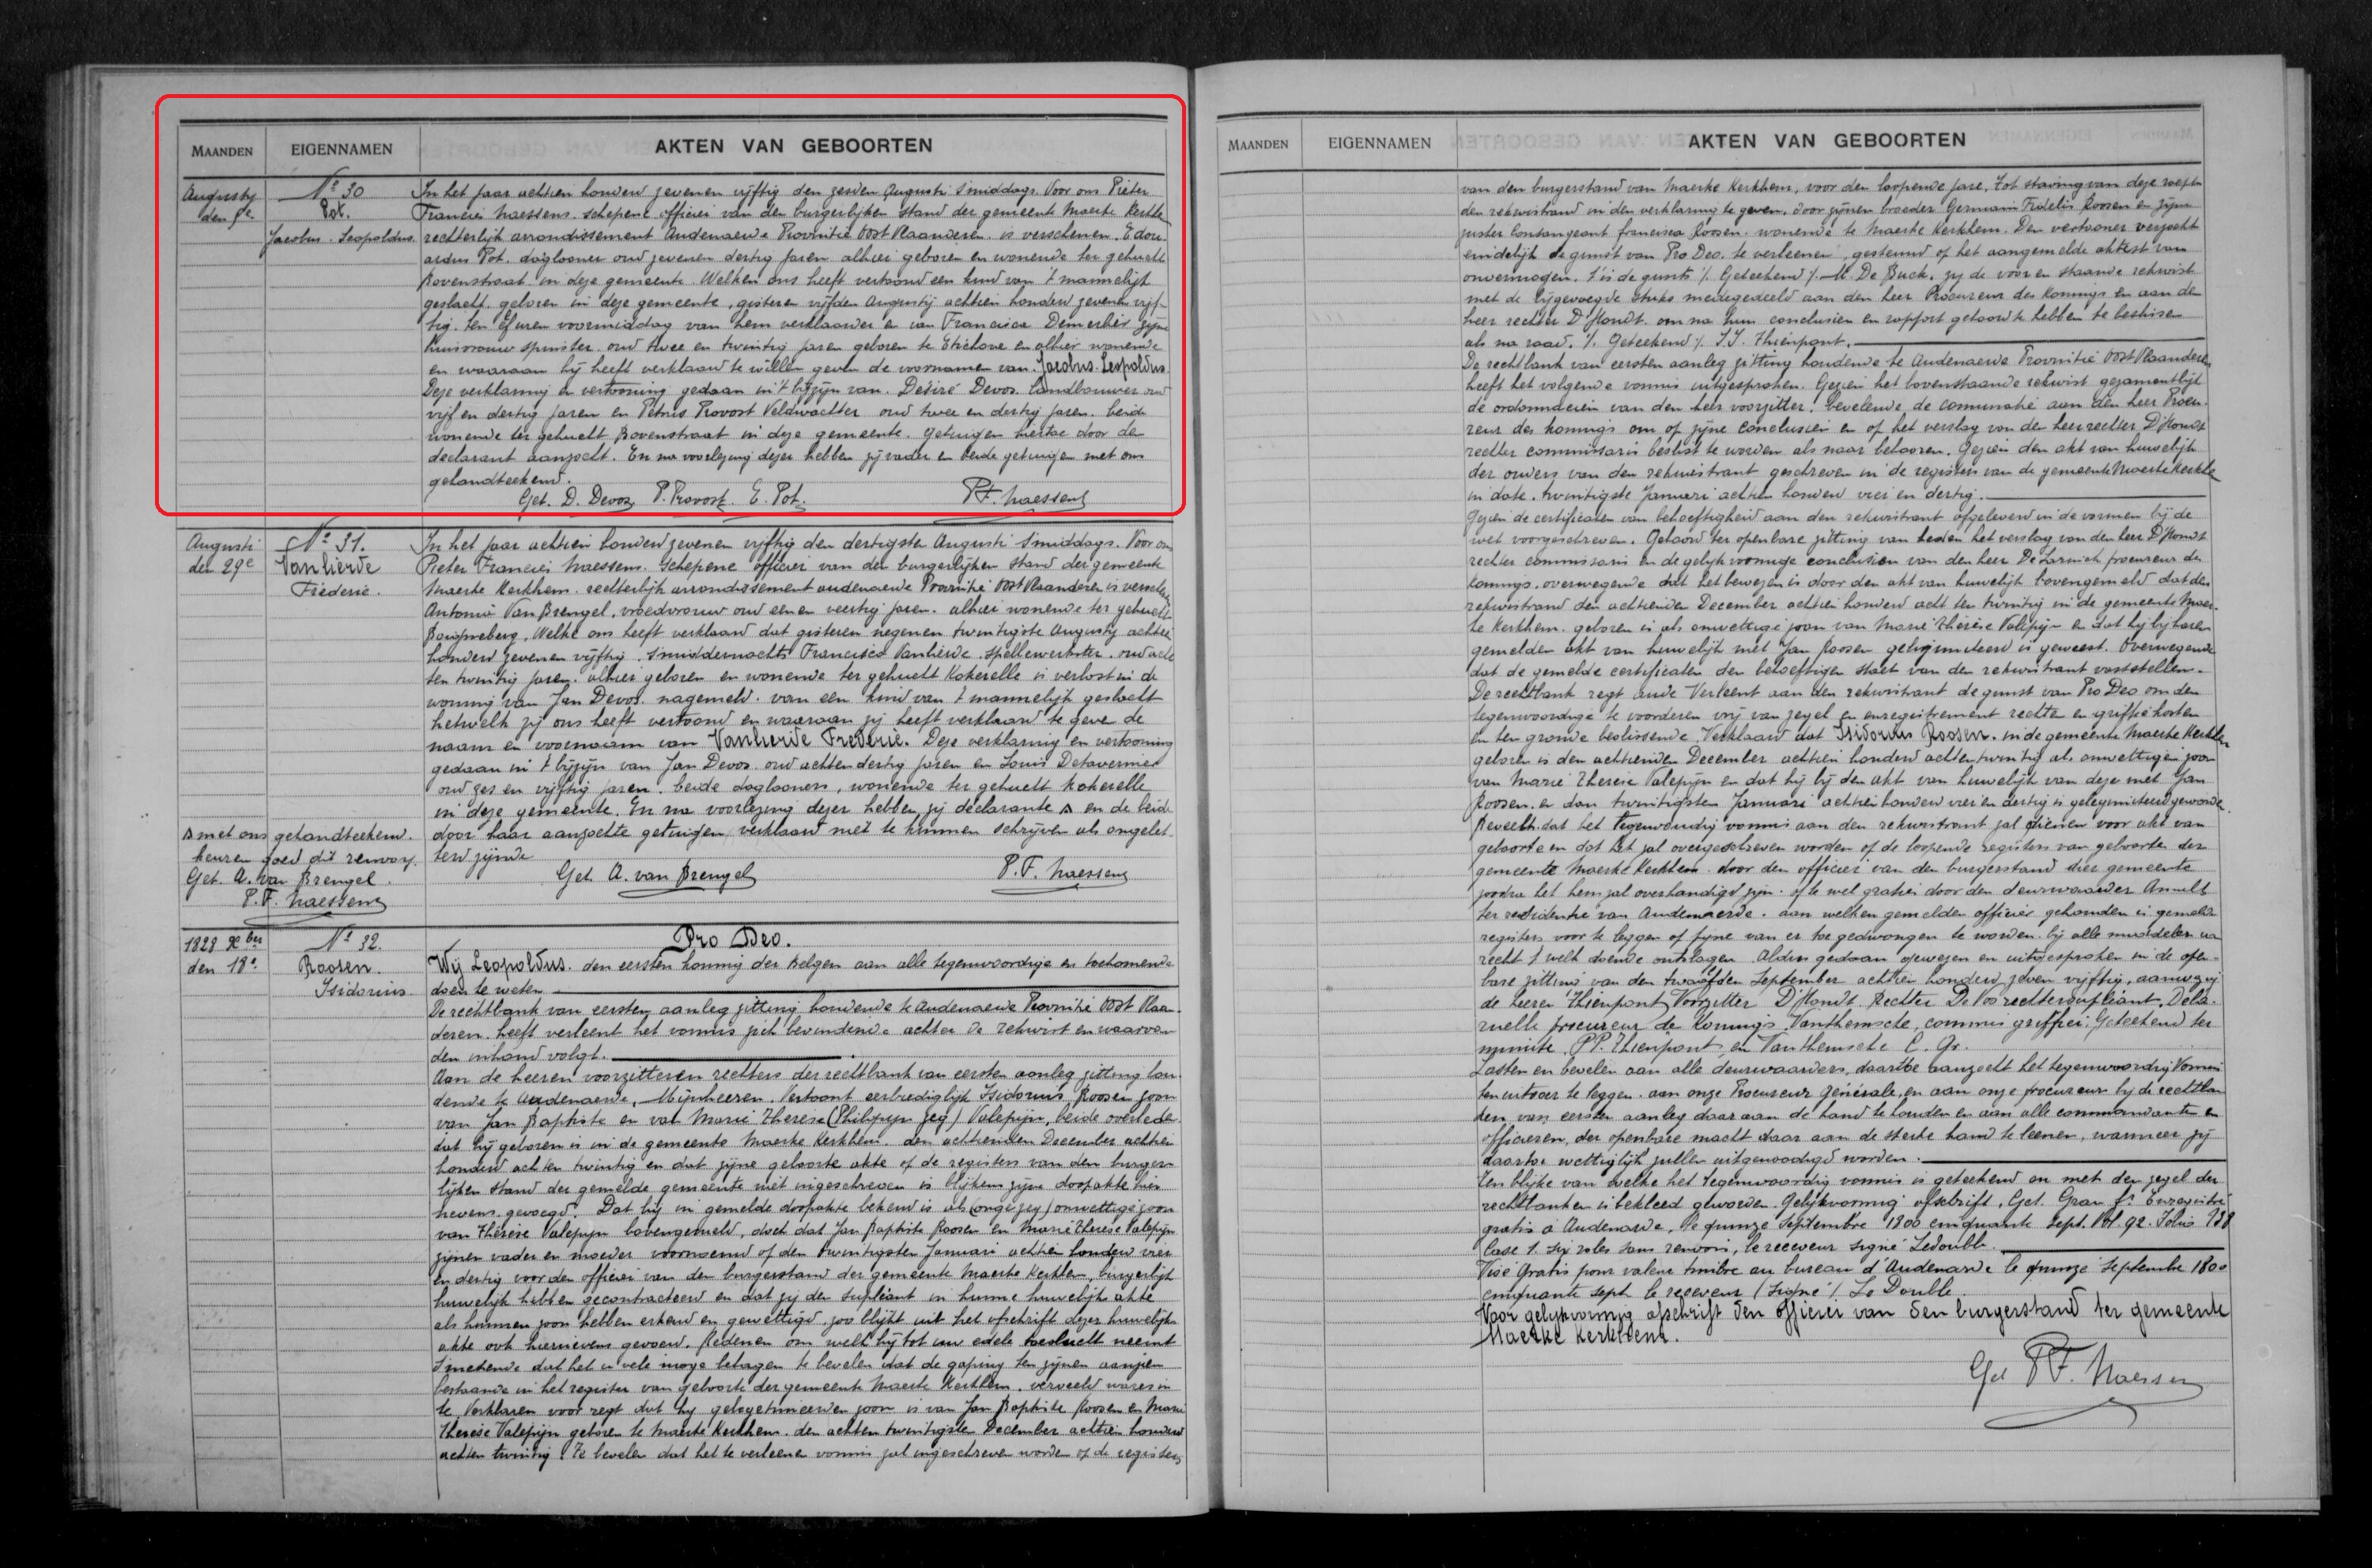 MAANDEN EIGENNAMEN AKTEN VAN GEBOORTEN
Augusty No 30 In het jaar achtien honderd zevenen vijftig den zesden Augusti smiddags. Voor ons Pieter
den 5e Pot. Francies Naessens. Schepene officier van den burgerlijken stand der gemeente Maerke Kerkhem
Jacobus. Leopoldus. rechterlijk arrondissement Audenaerde Provintie Oost Vlaanderen. is verschenen. Edou-
ardus Pot. daglooner oud zevenen dertig jaren alhier geboren en wonende ter gehucht
Bovenstraat in deze gemeente. Welken ons heeft vertoond een kind van 't mannelijk
geslacht. geboren in deze gemeente, gisteren vijfden Augusty achtien honderd zevenen vijf-
tig. ten elf uren voormiddag van hem verklaarder en van Francisca Demerlier zijne
huisvrouw spinster. oud twee en twintig jaren geboren te Etichove en alhier wonende
en waaraan hij heeft verklaard te willen geven de voornamen van. Jacobus. Leopoldus.
Deze verklaring en vertooning gedaan in 't bijzijn van. Désiré Devos. landbouwer oud
vijf en dertig jaren en Petrus Provost Veldwachter oud twee en dertig jaren. beide
wonende ter gehucht Bovenstraat in deze gemeente. getuigen hiertoe door de
declarant aanzocht. En na voorlezing dezer hebben zij vader en beide getuigen met ons
gehandteekend.
Get. D. Devos P. Provost. E. Pot. P.F. Naessens
Augusti No 31. In het jaar achtien honderd zevenen vijftig den dertigsten Augusti smiddags. Voor ons
den 29e Vanlierde Pieter Francies Naessens. Schepene officier van den burgerlijken stand der gemeente
Fréderic. Maerke Kerkhem. rechterlijk arrondissement audenaerde Provintie Oost Vlaanderen is verschenen
Antonia Van Brengel, vroedvrouw oud eenen veertig jaren. alhier wonende ter gehucht
Bougneberg, Welke ons heeft verklaard dat gisteren negenen twintigste Augusty achtien
honderd zevenen vijftig. smiddernachts Francisca Vanlierde. spellewerkster. oud acht
ten twintig jaren. alhier geboren en wonende ter gehucht Kokerelle is verlost in de
woning van Jan Devos. nagemeld. van een kind van 't mannelijk geslacht
hetwelk zij ons heeft vertoond en waaraan zij heeft verklaard te geven de
naam en voornaam van Vanlierde Frederic. Deze verklaring en vertooning
gedaan in 't bijzijn van Jan Devos. oud achten dertig jaren en Louis Detavernier
oud zes en vijftig jaren. beide daglooners, wonende ter gehucht Kokerelle
in deze gemeente. En na voorlezing dezer hebben zij declarante en de beide
met ons gehandteekend. door haar aanzochte getuigen verklaard niet te kunnen schrijven als ongelet-
keuren goed dit renvoy. terd zijnde
Get. A. van Brengel. Get. A. van Brengel P.F. Naessens
P.F. Naessens
1828 Xber No 32. Pro Deo.
den 18e Roosen. Wij Leopoldus. den eersten koning der Belgen aan alle tegenwoordige en toekomende
Isidorius doen te weten
De rechtbank van eersten aanleg zitting houdende te Audenaerde Provintie Oost Vlaan-
deren. heeft verleent het vonnis zich bevindende achter de rekwist en waarvan
den inhoud volgt.
Aan de heeren voorzitteren rechters der rechtbank van eersten aanleg zitting hou-
dende te Audenaerde. Mijnheeren. Vertoont eerbiediglijk Isidorius Roosen zoon
van Jan Baptiste en van Marie Therese (Philipyn zeg) Valepijn, beide overleden
dat hij geboren is in de gemeente Maerke Kerkhem. den achtienden December achtien
honderd achten twintig en dat zijne geboorte akte of de registers van den burger-
lijken stand der gemelde gemeente niet ingeschreven is blijkens zijne doopakte hier
nevens gevoegd. Dat hij in gemelde doopakte bekend is als onwettige zoon
van Thérèse Valepijn bovengemeld, doch dat Jan Baptiste Roosen en Marie Therese Valepijn
zijnen vader en moeder voornoemd of den twintigsten Januari achtien honderd vier
en dertig voor den officier van den burgerstand der gemeente Maerke Kerkhem, burgerlijk
huwelijk hebben gecontracteerd en dat zij den supliant in hunne huwelijks akte
als hunnen zoon hebben erkend en gewettigd, zoo blijkt uit het afschrift dezer huwelijks
akte ook hiernevens gevoerd. Redenen om welk hij tot uw edele toevlucht neemt
Smekende dat het u vele moge behagen te bevelen dat de gaping ten zijnen aanzien
bestaande in het register van geboorte der gemeente Maerke Kerkhem. verveeld wezen
te Verklaren voor regt dat hij gelegetimeerden zoon is van Jan Baptiste Roosen en Marie
Therese Valepijn geboren te Maerke Kerkhem. den achten twintigsten December achtien honderd
achten twintig. Te bevelen dat het te verleenen vonnis zal ingeschreven worden of de registers
MAANDEN EIGENNAMEN AKTEN VAN GEBOORTEN
van den burgerstand van Maerke Kerkhem, voor den loopende jare. Tot staving van deze roept
den rekwistrand in den verklaring te geven, door zijnen broeder Germain Fidelis Roosen en zijne
zuster Constangeant francisca Roosen. wonende te Maerke Kerkhem. Den vertooner verzoekt
eindelijk de gunst van Pro Deo. te verleenen, gesteund of het aangemelde attest van
onvermogen. t'is de gunst /. Geteekend /. M. De Buck. zij de voor en staande rekwist
met de bijgevoegde stuks medegedeeld aan den heer Procureur des Konings en aan den
heer rechter D'Hondt. om na hun conclusien en rapport gehoord te hebben te beslissen
als na raad. /. Geteekend /. J.J. Thienpont.
De rechtbank van eersten aanleg zitting houdende te Audenaerde Provintie Oost Vlaanderen
heeft het volgende vonnis uitgesproken. Gezien het bovenstaande rekwist gezamentlijk
de ordonnancien van den heer voorzitter. bevelende de comunicatie aan den heer Procu-
reur des konings om of zijne conclusien en of het verslag van den heer rechter D'Hondt
rechter commissaris beslist te worden als naar behooren. Gezien den akt van huwelijk
der ouders van den rekwistrant geschreven in de registers van de gemeente Maerke Kerkhem
in date. twintigste Januari achtien honderd vier en dertig.
Gezien de certificaten van behoeftigheid aan den rekwistrant afgeleverd in de vormen bij de
wet voorgeschreven. Gehoord ter openbare zitting van heden het verslag van den heer D'Hondt
rechter commissaris en de gelijkvormige conclusien van den heer procureur des
konings. overwegende dat het bewezen is door den akt van huwelijk bovengemeld dat den
rekwistrand den achtienden December achtien honderd acht ten twintig in de gemeente Maer-
ke Kerkhem. geboren is als onwettige zoon van Marie Thérèse Valepijn en dat hij bij haren
gemelden akt van huwelijk met Jan Roosen gelegimiteerd is geweest. Overwegende
dat de gemelde certificaten den behoeftigen staet van den rekwistrant vaststellen.
De rechtbank regt ende Verleent aan den rekwistrant de gunst van Pro Deo om den
tegenwoordige te voorderen vrij van zegel en enregistrement rechten en griffie kosten
en ten gronde beslissende. Verklaard dat Isidorus Roosen. in de gemeente Maerke Kerkhem
geboren is den achtienden December achtien honderd achten twintig als onwettigen zoon
van Marie Therese Valepijn en dat hij bij den akt van huwelijk van deze met Jan
Roosen. en dan twintigsten Januari achtien honderd vier en dertig is gelegimiteerd geworden.
Beveelt dat het tegenwoordig vonnis aan den rekwistrant zal dienen voor akt van
geboorte en dat het zal overgeschreven worden of de loopende registers van geboorte der
gemeente Maerke Kerkhem. door den officier van den burgerstand dier gemeente
zoodra het hem zal overhandigd zijn. of te wel gratis door den deurwaarder
ter residentie van Audenaerde. aan welken gemelden officier gehouden is gemelde
registers voor te leggen of pijne van er toe gedwongen te worden. bij alle middelen van
recht 't welk doende ontslagen. Aldus gedaan gewezen en uitgesproken in de open-
bare zitting van den twaalfden September achtien honderd zeven vijftig, aanwezig
de heeren Thienpont Voorzitter D'Hondt. Rechter De Vos rechter supliant. Dela-
ruelle procureur de Konings. Vanthemsche, commis griffier; Geteekend ter
minute. PP. Thienpont en Vanthemsche C. Gr.
Lasten en bevelen aan alle deurwaarders, daartoe aanzocht het tegenwoordig Vonnis
ten uitvoer te leggen. aan onze Procureur Générale, en aan onze procureur bij de rechtban-
ken van eersten aanleg daar aan de hand te houden en aan alle commandanten en
officieren, der openbare macht daar aan de sterke hand te leenen, wanneer zij
daartoe wettiglijk zullen uitgenoodigd worden.
Ten blijke van welke het tegenwoordig vonnis is geteekend en met den zegel der
rechtbanken is bekleed geworden. Gelijkvormig afschrift. Get. Grau fs. Enregistré
gratis a Audenarde, le quinze Septembre 1800 cinquante sept. Vol. 92. Folio 138
Case 1. six roles sans renvoi, le receveur signé Ledouble.
Visé gratis pour valeur timbre au bureau d'Audenarde le quinze septembre 1800
cinquante sept le receveur / Signé / Le Double.
Voor gelykvormig afschrift den officier van den burgerstand ter gemeente
Maerke Kerkhem.
Get P F. Naessens